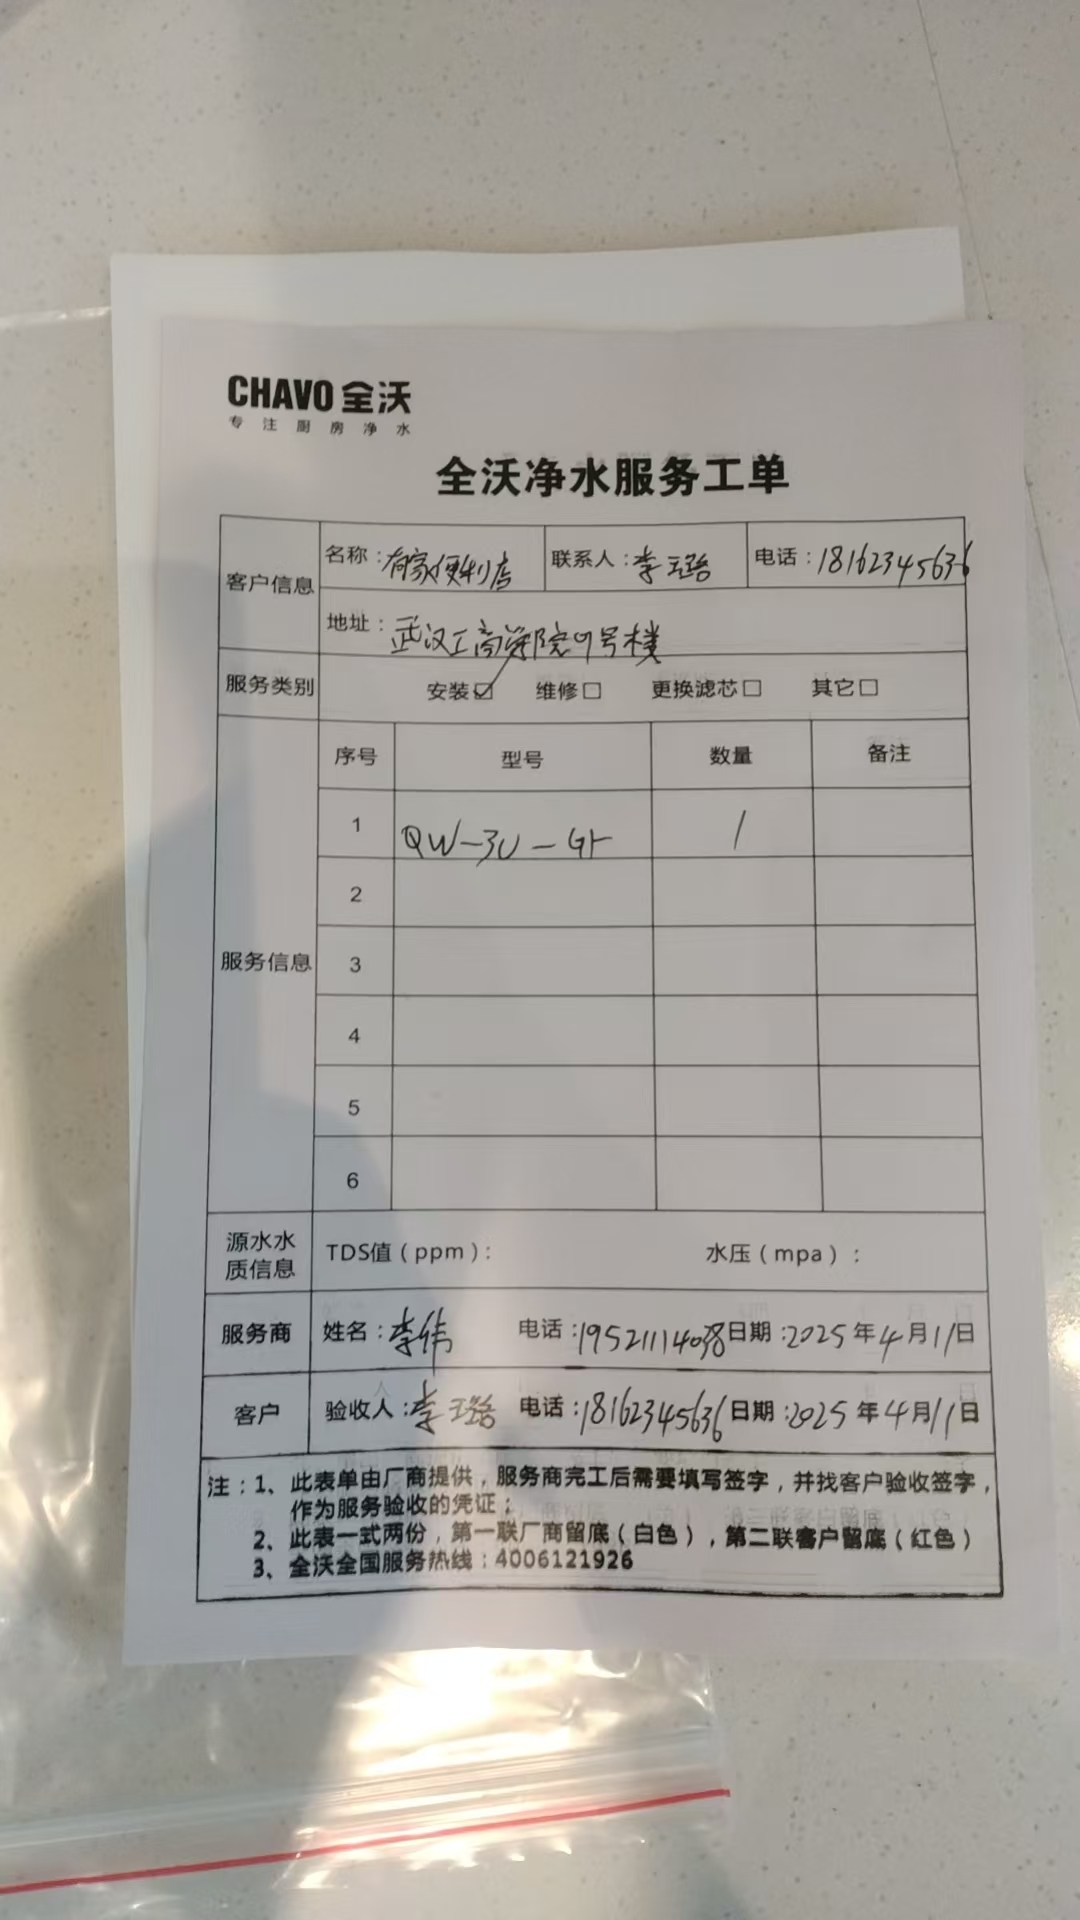 CHAVO 全沃
专注厨房净水
全沃净水服务工单
客户信息 名称：有家便利店 联系人：李璐 电话：18162345636
地址：武汉工商学院9号楼
服务类别 安装☑ 维修□ 更换滤芯□ 其它□
服务信息 序号 型号 数量 备注
1 QW-3U-Gr 1
2
3
4
5
6
源水水质信息 TDS值（ppm）： 水压（mpa）：
服务商 姓名：李伟 电话：19521114038 日期：2025年4月11日
客户 验收人：李璐 电话：18162345636 日期：2025年4月11日
注：1、此表单由厂商提供，服务商完工后需要填写签字，并找客户验收签字，
作为服务验收的凭证；
2、此表一式两份，第一联厂商留底（白色），第二联客户留底（红色）
3、全沃全国服务热线：4006121926